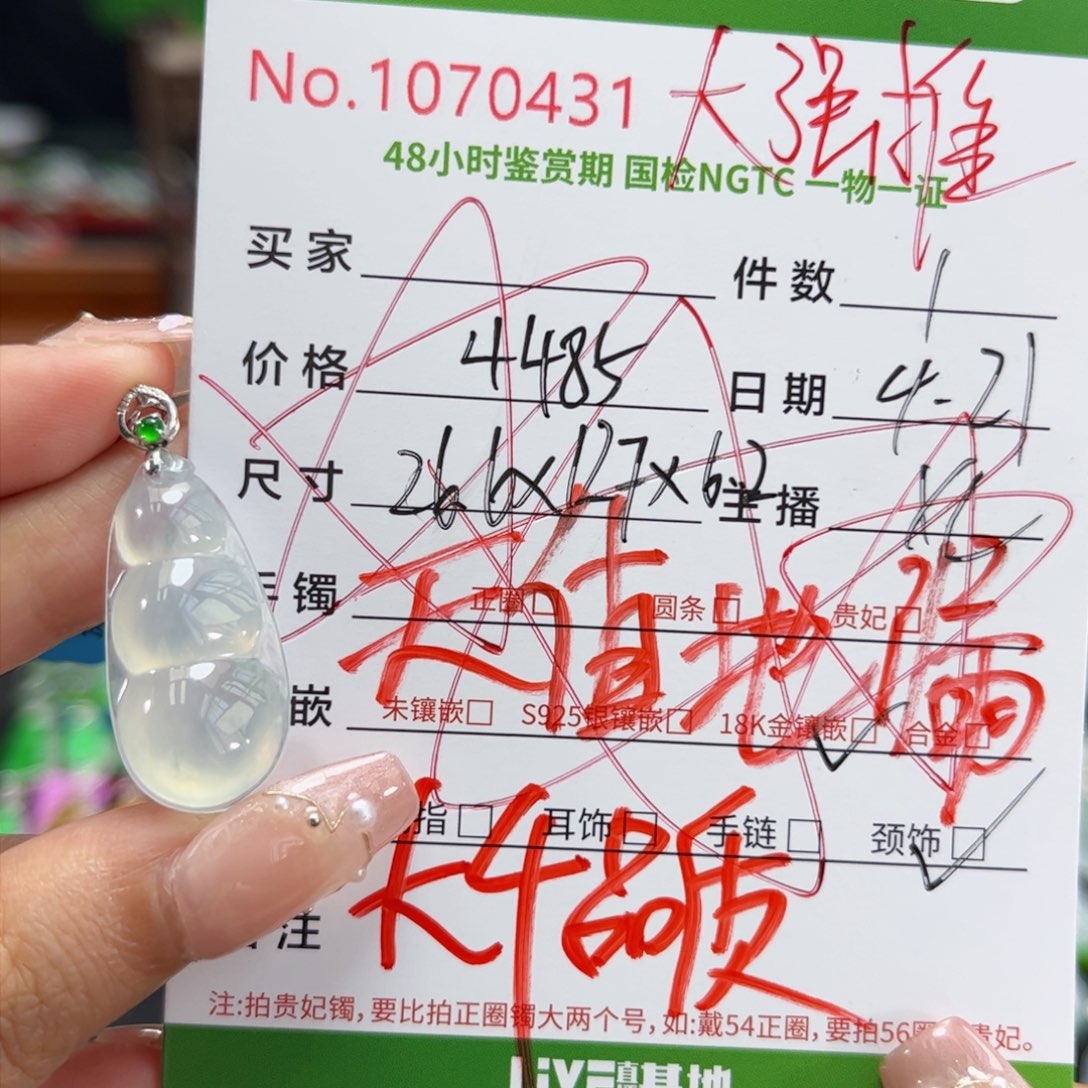 No.1070431 大强推
48小时鉴赏期 国检NGTC 一物一证
买家 件数 1
价格 4485 日期 4-21
尺寸 26.6x12.7x6.2 主播
手镯 正圈□ 圆条□ 贵妃□
嵌 未镶嵌□ S925银镶嵌□ 18K金镶嵌□ 合金□
天值地
指□ 耳饰□ 手链□ 颈饰□
大牛品质
注
注:拍贵妃镯,要比拍正圈镯大两个号,如:戴54正圈,要拍56圈贵妃。
LiVE 基地